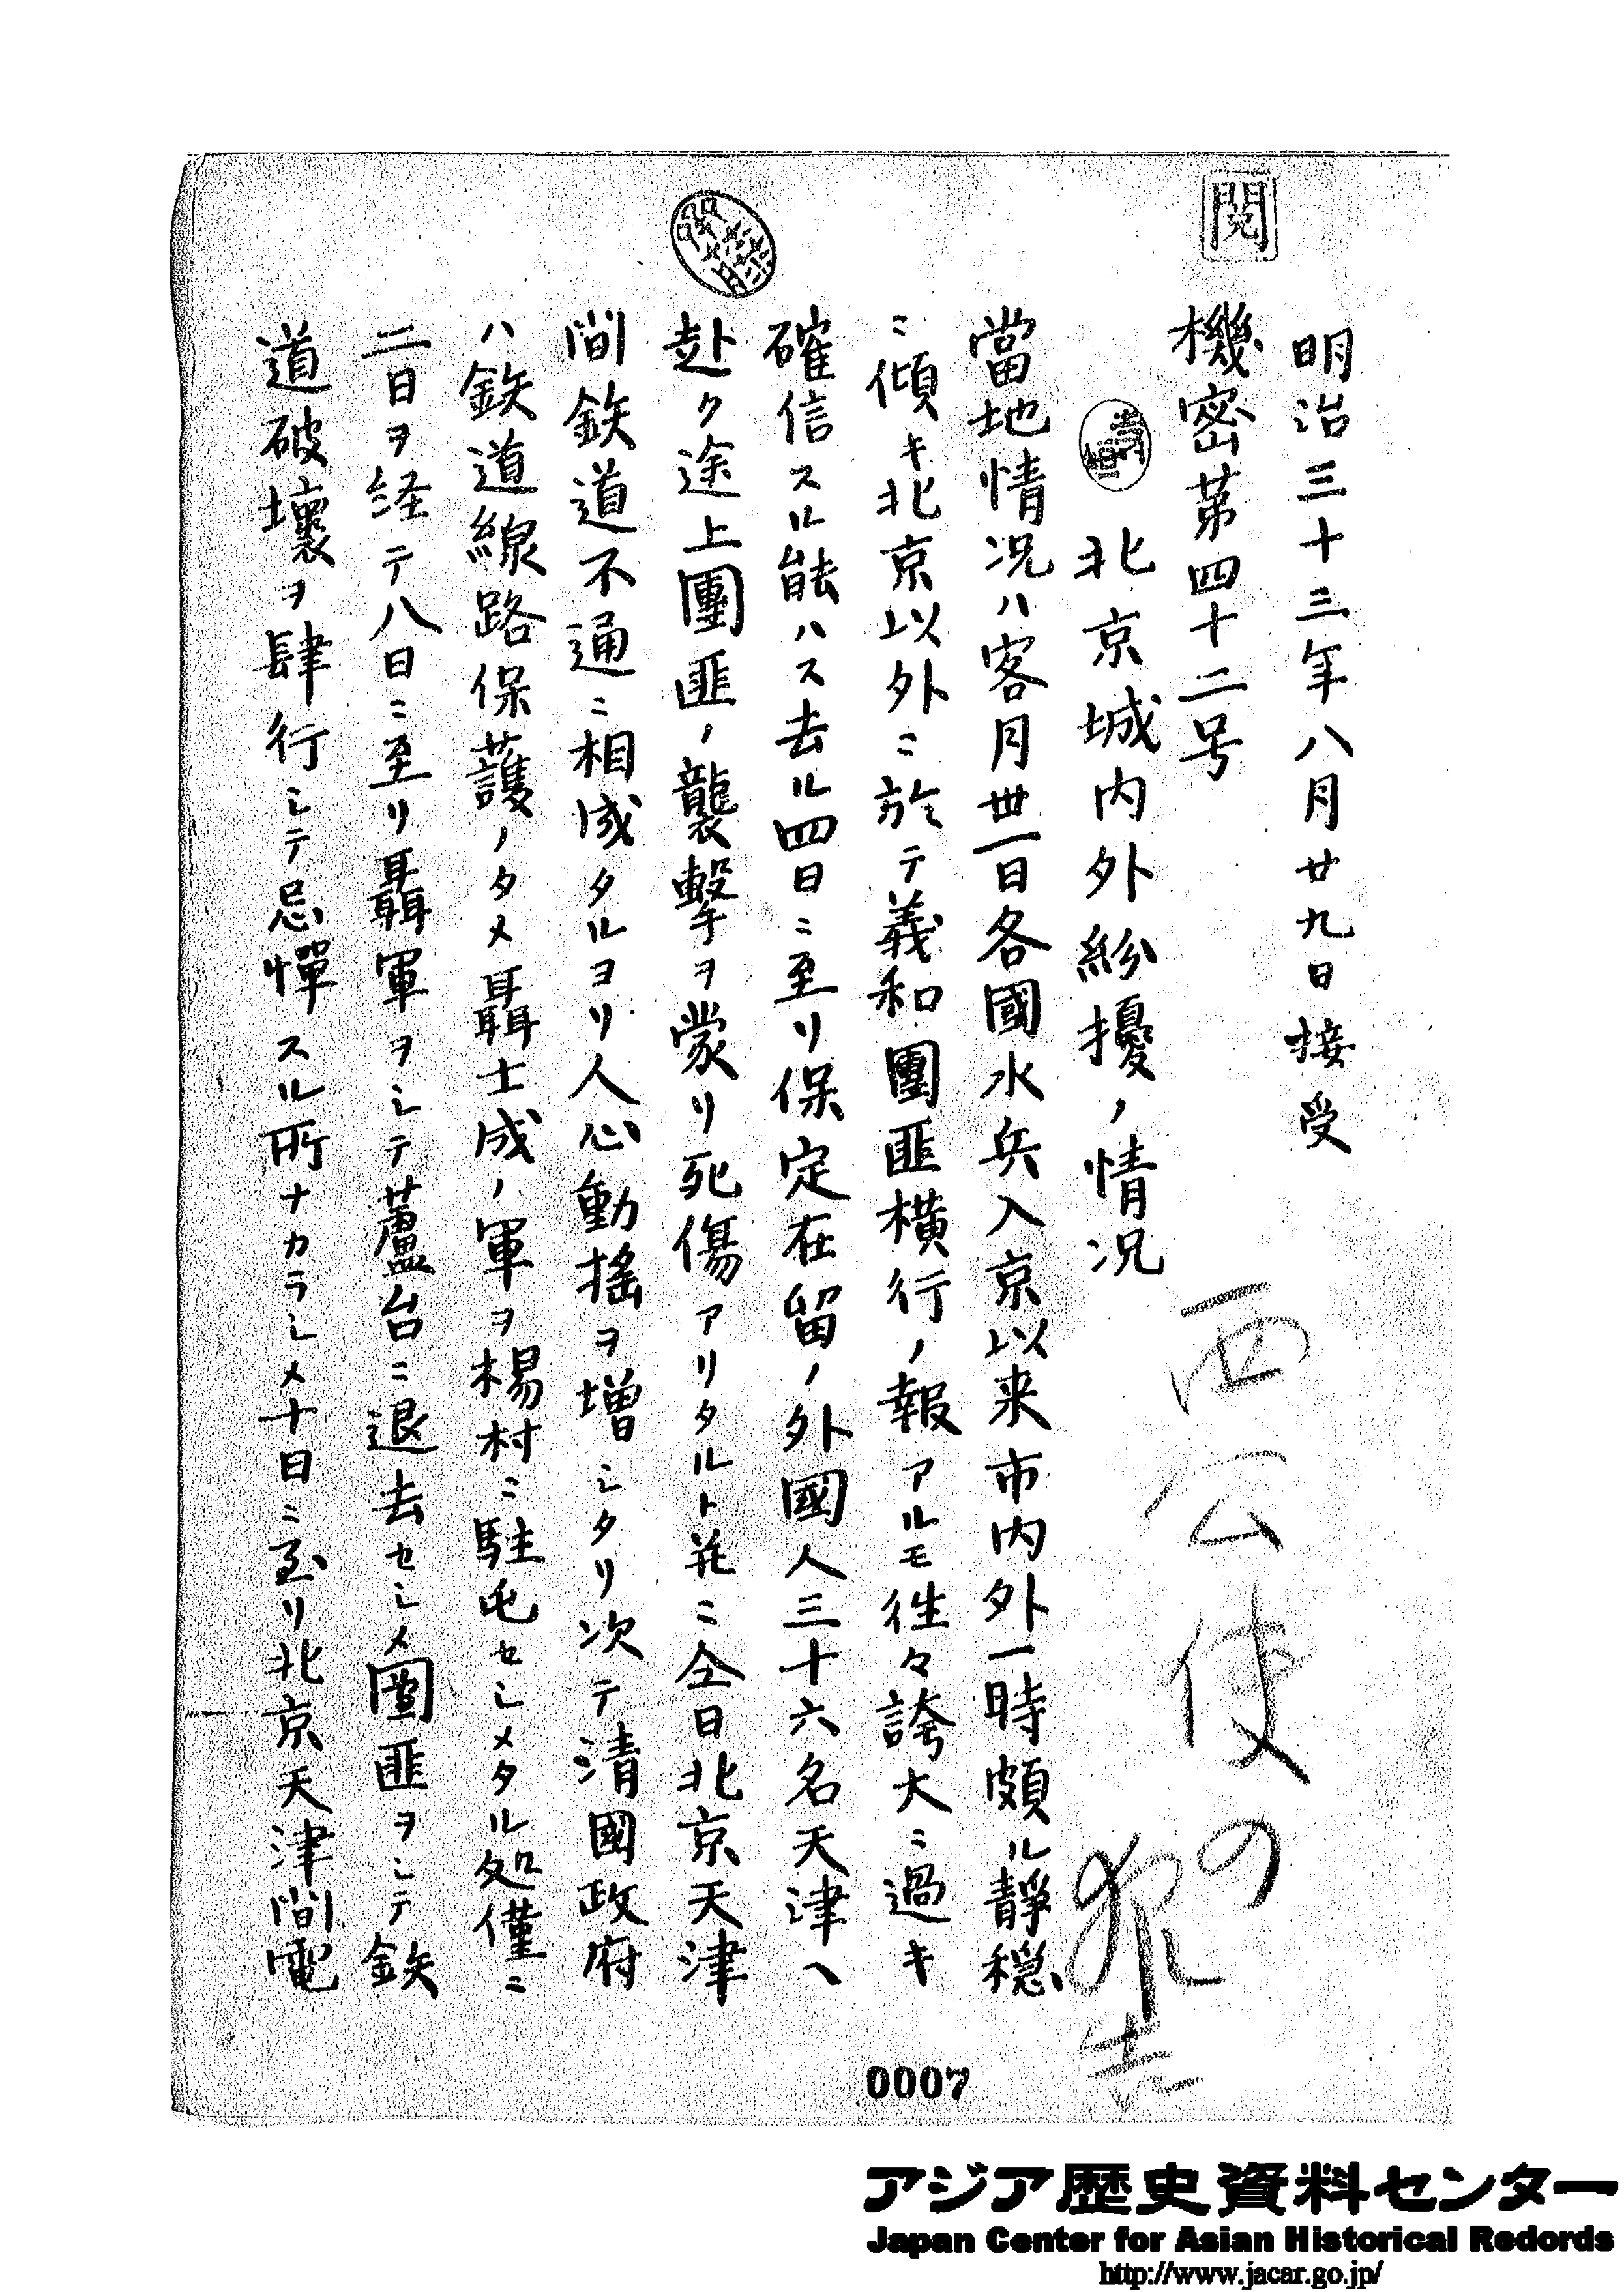 閲
明治三十三年八月廿九日接受
機密第四十二号
北京城内外紛擾ノ情況
西公使の報告
當地情況ハ客月丗一日各國水兵入京以来市内外一時頗ル静穏
ニ傾キ北京以外ニ於テ義和團匪横行ノ報アルモ往々誇大ニ過キ
確信スル能ハス去ル四日ニ至リ保定在留ノ外國人三十六名天津ヘ
赴ク途上團匪ノ襲撃ヲ蒙リ死傷アリタルト並ニ仝日北京天津
間鉄道不通ニ相成タルヨリ人心動揺ヲ増シタリ次テ清國政府
ハ鉄道線路保護ノタメ聶士成ノ軍ヲ楊村ニ駐屯セシメタル処僅ニ
二日ヲ経テ八日ニ至リ聶軍ヲシテ蘆台ニ退去セシメ團匪ヲシテ鉄
道破壊ヲ肆行シテ忌憚スル所ナカラシメ十日ニ至リ北京天津間電
0007
アジア歴史資料センター
Japan Center for Asian Historical Redords
http://www.jacar.go.jp/